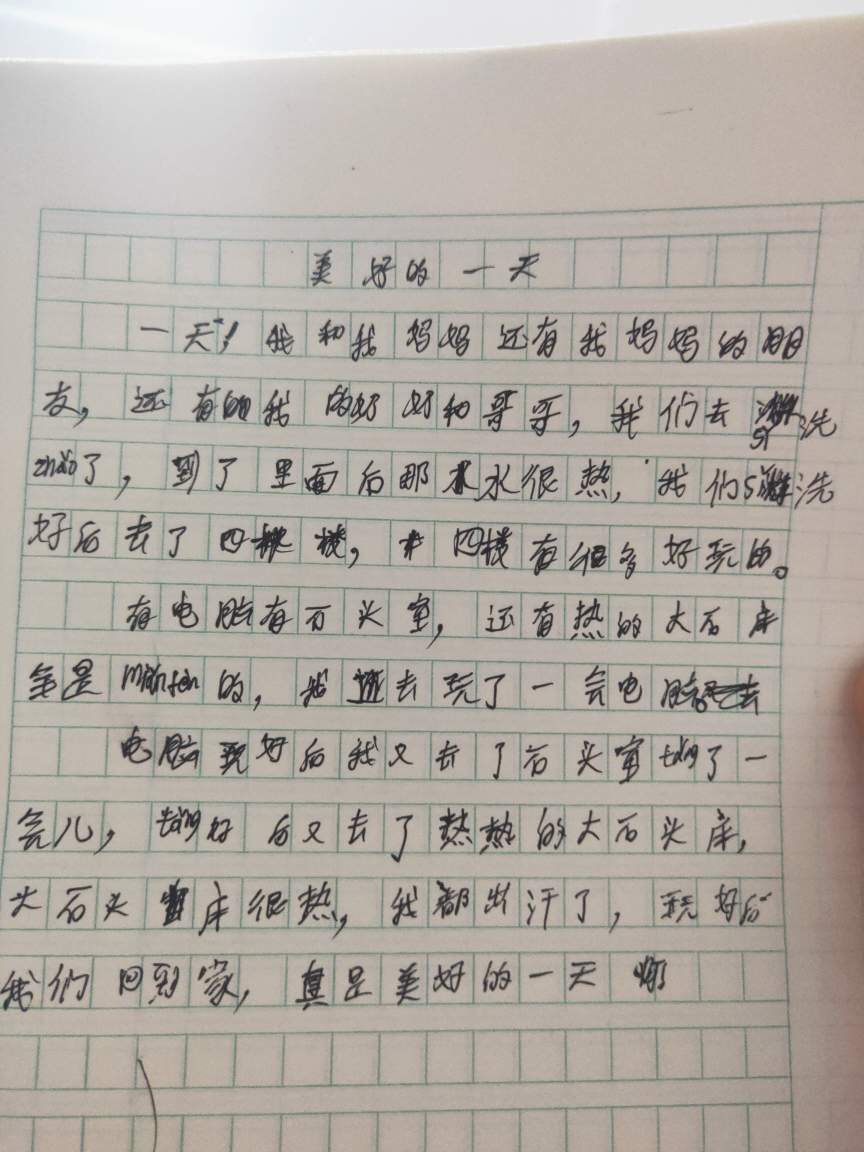 美好的一天
一天，我和我妈妈还有我妈妈的朋
友，还有的我的好好和哥哥，我们去洗
zhǎo了，到了里面后那水很热，我们洗
好后去了四楼，四楼有很多好玩的。
有电脑有石头室，还有热的大石床
全是miǎnfèn的，我进去玩了一会电脑
电脑玩好后我又去了石头室tǎng了一
会儿，tǎng好后又去了热热的大石头床，
大石头床很热，我都出汗了，玩好后
我们回到家，真是美好的一天啊